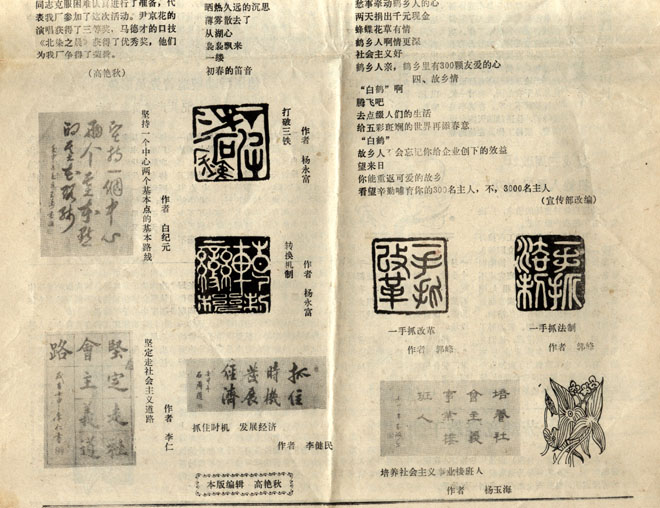 同志克服困难认真进行了准备，代
表我厂参加了这次活动。尹京花的
演唱获得了三等奖，马德才的口技
获得了优秀奖，他们
为我厂争得了
（高艳秋）
晒热久远的沉思
薄雾散去了
从湖心
袅袅飘来
一缕
初春的笛音
愁事牵动鹤乡人的心
两天捐出千元现金
蜂蝶花草有情
鹤乡人啊情更深
社会主义好
鹤乡人亲，鹤乡里有300颗友爱的心
四、故乡情
“白鹤”啊
腾飞吧
去点缀人们的生活
给五彩斑斓的世界再添春意
“白鹤”
故乡人 会忘记你给企业创下的效益
望来日
你能重返可爱的故乡
看望辛勤哺育你的300名主人，不，3000名主人
（宣传部改编）
坚持一個中心
兩个基本點
的基本路线
坚持一个中心两个基本点的基本路线
作者 白纪元
打破三铁
作者 杨永富
转换机制
作者 杨永富
一手抓改革
一手抓改革
作者 郭峰
一手抓法制
作者 郭峰
坚定走社
會主義道
路
坚定走社会主义道路
作者 李仁
抓住
時機
發展
经濟
抓住时机 发展经济
作者 李健民
培養社
會主義
事業接
班人
培养社会主义事业接班人
作者 杨玉海
本版编辑 高艳秋